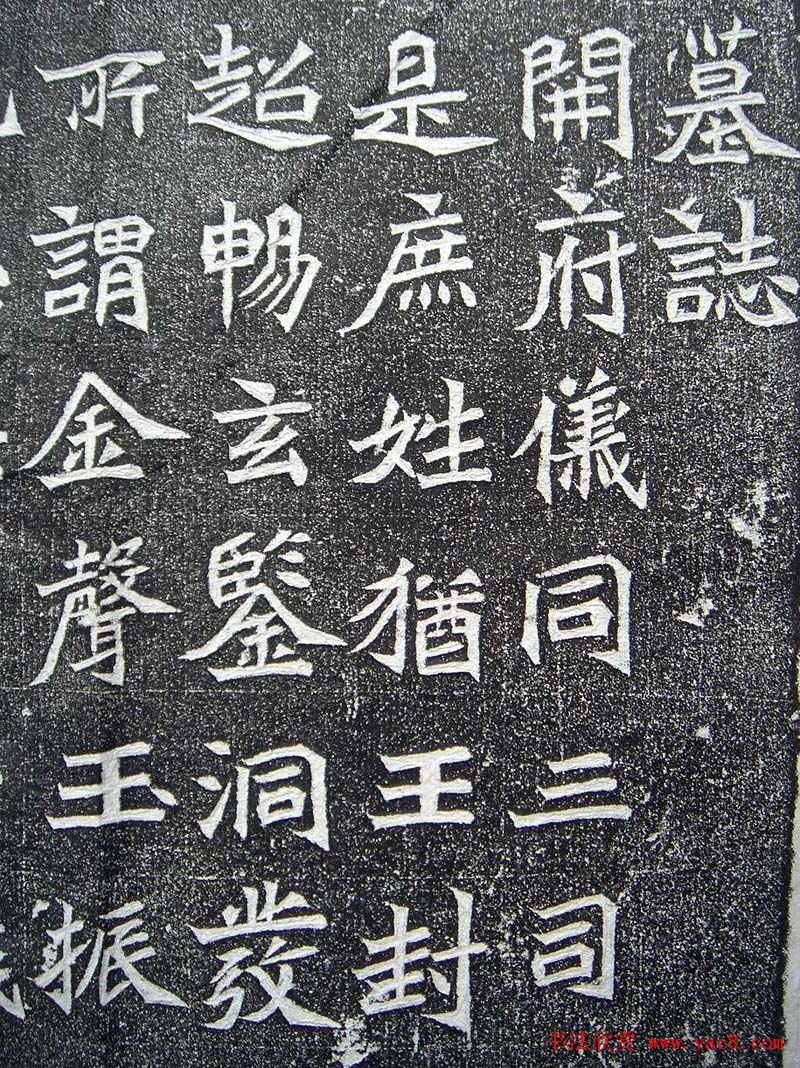 墓誌
開府儀同三司
是庶姓猶王封
超暢玄鑒洞發
所謂金聲玉振
书法欣赏 www.yac8.com